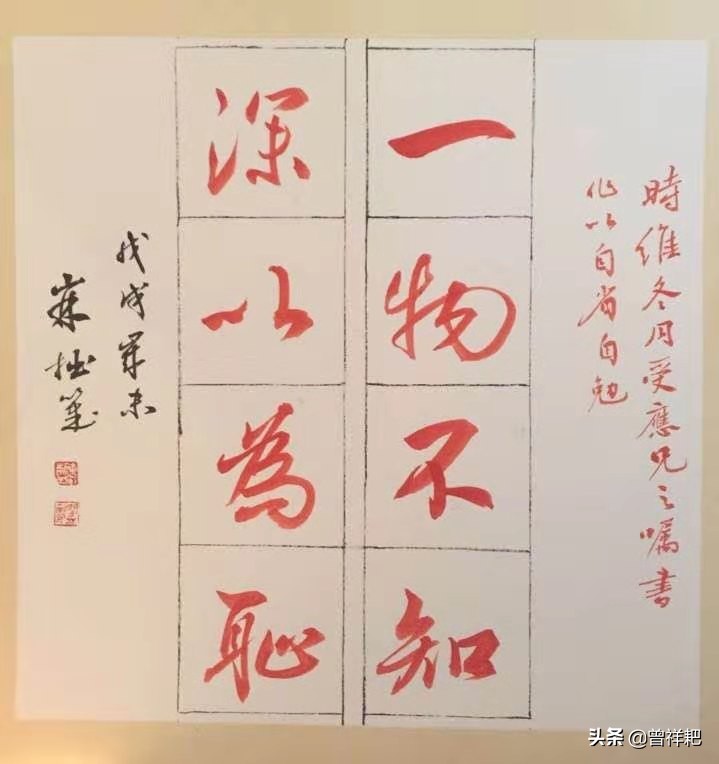 時維冬月受應兄之嘱書
作以自省自勉
一物不知
深以為恥
戊戌年末
拙筆
头条 @曾祥耙